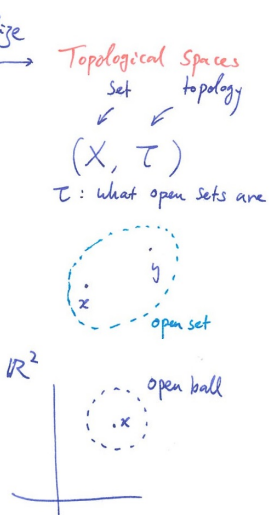 Topological Spaces
set topology
(X, τ)
τ : what open sets are
y
x
open set
ℝ²
open ball
x